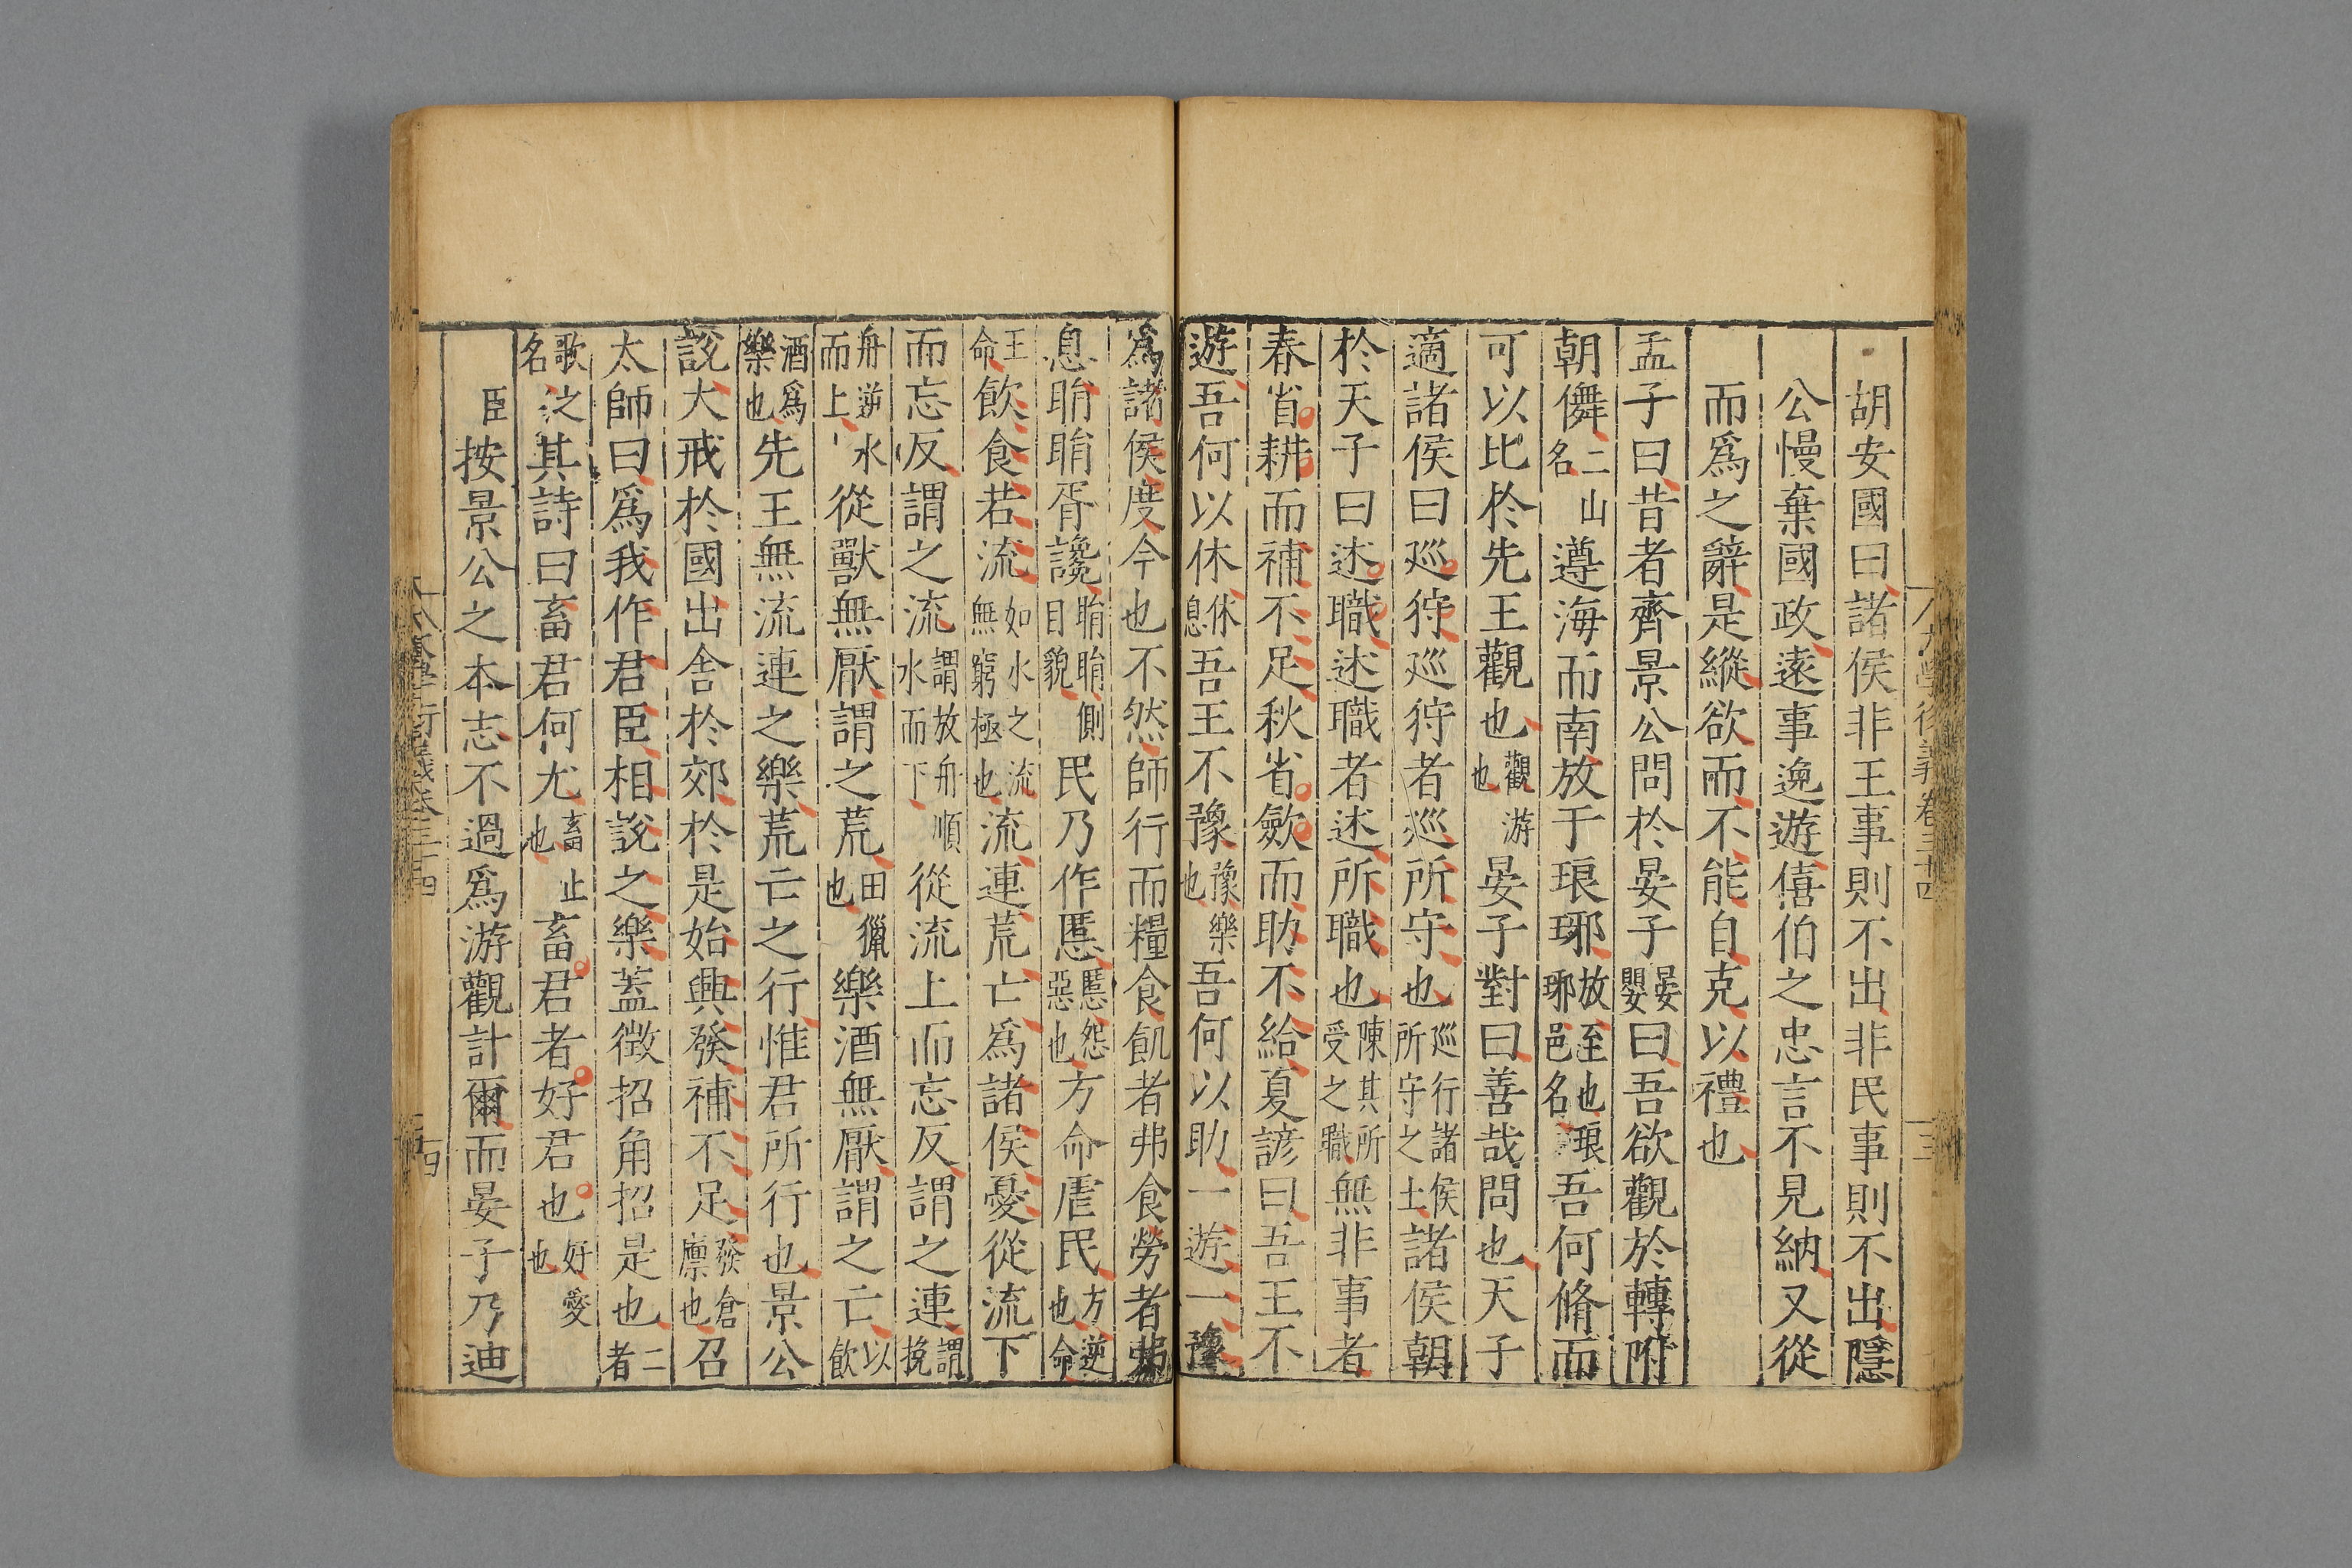 胡安國曰諸侯非王事則不出非民事則不出隱
公慢棄國政遠事逸遊僖伯之忠言不見納又從
而爲之辭是縱欲而不能自克以禮也
孟子曰昔者齊景公問於晏子晏嬰曰吾欲觀於轉附
朝儛二山名遵海而南放于琅琊放至也琅琊邑名吾何脩而
可以比於先王觀也觀游也晏子對曰善哉問也天子
適諸侯曰巡狩巡狩者巡所守也巡行諸侯所守之土諸侯朝
於天子曰述職述職者述所職也陳其所受之職無非事者
春省耕而補不足秋省斂而助不給夏諺曰吾王不
遊吾何以休休息吾王不豫豫樂也吾何以助一遊一豫
爲諸侯度今也不然師行而糧食飢者弗食勞者弗
息睊睊胥讒睊睊側目貌民乃作慝慝怨惡也方命虐民方逆也命
王命飲食若流如水之流無窮極也流連荒亡爲諸侯憂從流下
而忘反謂之流謂放舟順水而下從流上而忘反謂之連謂挽
舟逆水而上從獸無厭謂之荒田獵也樂酒無厭謂之亡以飲
酒爲樂也先王無流連之樂荒亡之行惟君所行也景公
說大戒於國出舍於郊於是始興發補不足發倉廩也召
太師曰爲我作君臣相說之樂蓋徵招角招是也二者
歌之名其詩曰畜君何尤畜止也畜君者好君也好愛也
臣按景公之本志不過爲游觀計爾而晏子乃迪